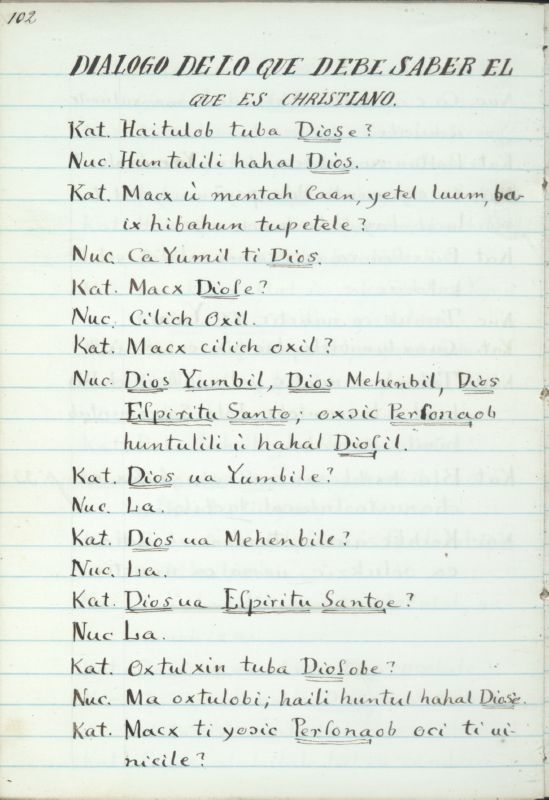 102
DIALOGO DE LO QUE DEBE SABER EL
QUE ES CHRISTIANO.
Kat. Haitulob tuba Diose?
Nuc. Huntulili hahal Dios.
Kat. Macx ù mentah Caan, yetel luum, ba-
ix hibahun tupetele?
Nuc. Ca Yumil ti Dios.
Kat. Macx Dioſe?
Nuc. Cilich Oxil.
Kat. Macx cilich oxil?
Nuc. Dios Yumbil, Dios Mehenbil, Dios
Eſpiritu Santo; oxɔic Perſonaob
huntulili ù hahal Dioſil.
Kat. Dios ua Yumbile?
Nuc. La.
Kat. Dios ua Mehenbile?
Nuc. La.
Kat. Dios ua Eſpiritu Santoe?
Nuc La.
Kat. Oxtulxin tuba Dioſobe?
Nuc. Ma oxtulobi; haili huntul hahal Diose.
Kat. Macx ti yoɔic Perſonaob oci ti ui-
nicile?